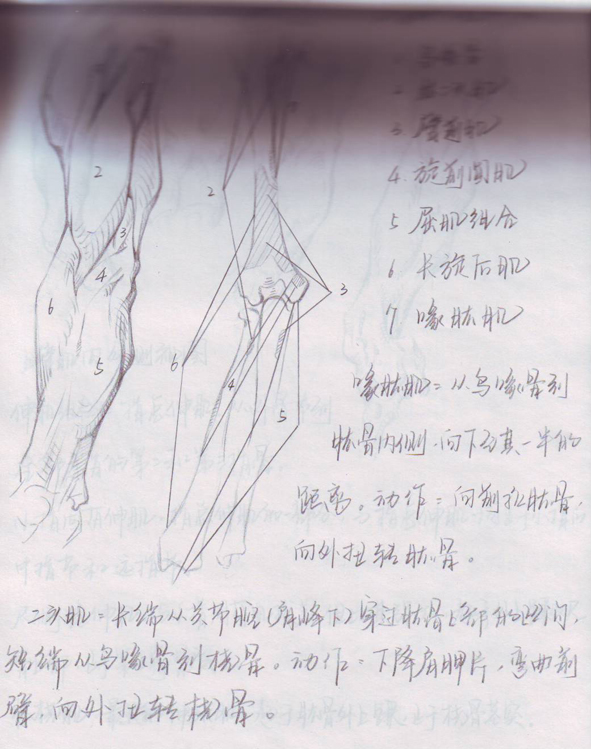 2
3
4
6
5
2
3
6
4
5
2
3
4. 旋前圆肌
5 屈肌组合
6 长旋后肌
7 喙肱肌
喙肱肌=从鸟喙骨到
肱骨内侧.向下到其一半的
距离。动作=向前拉肱骨.
向外扭转肱骨。
二头肌=长端从关节腔(肩峰下)穿过肱骨上部的凹沟,
短端从鸟喙骨到桡骨。动作=下降肩胛片,弯曲前
臂.向外扭转桡骨。